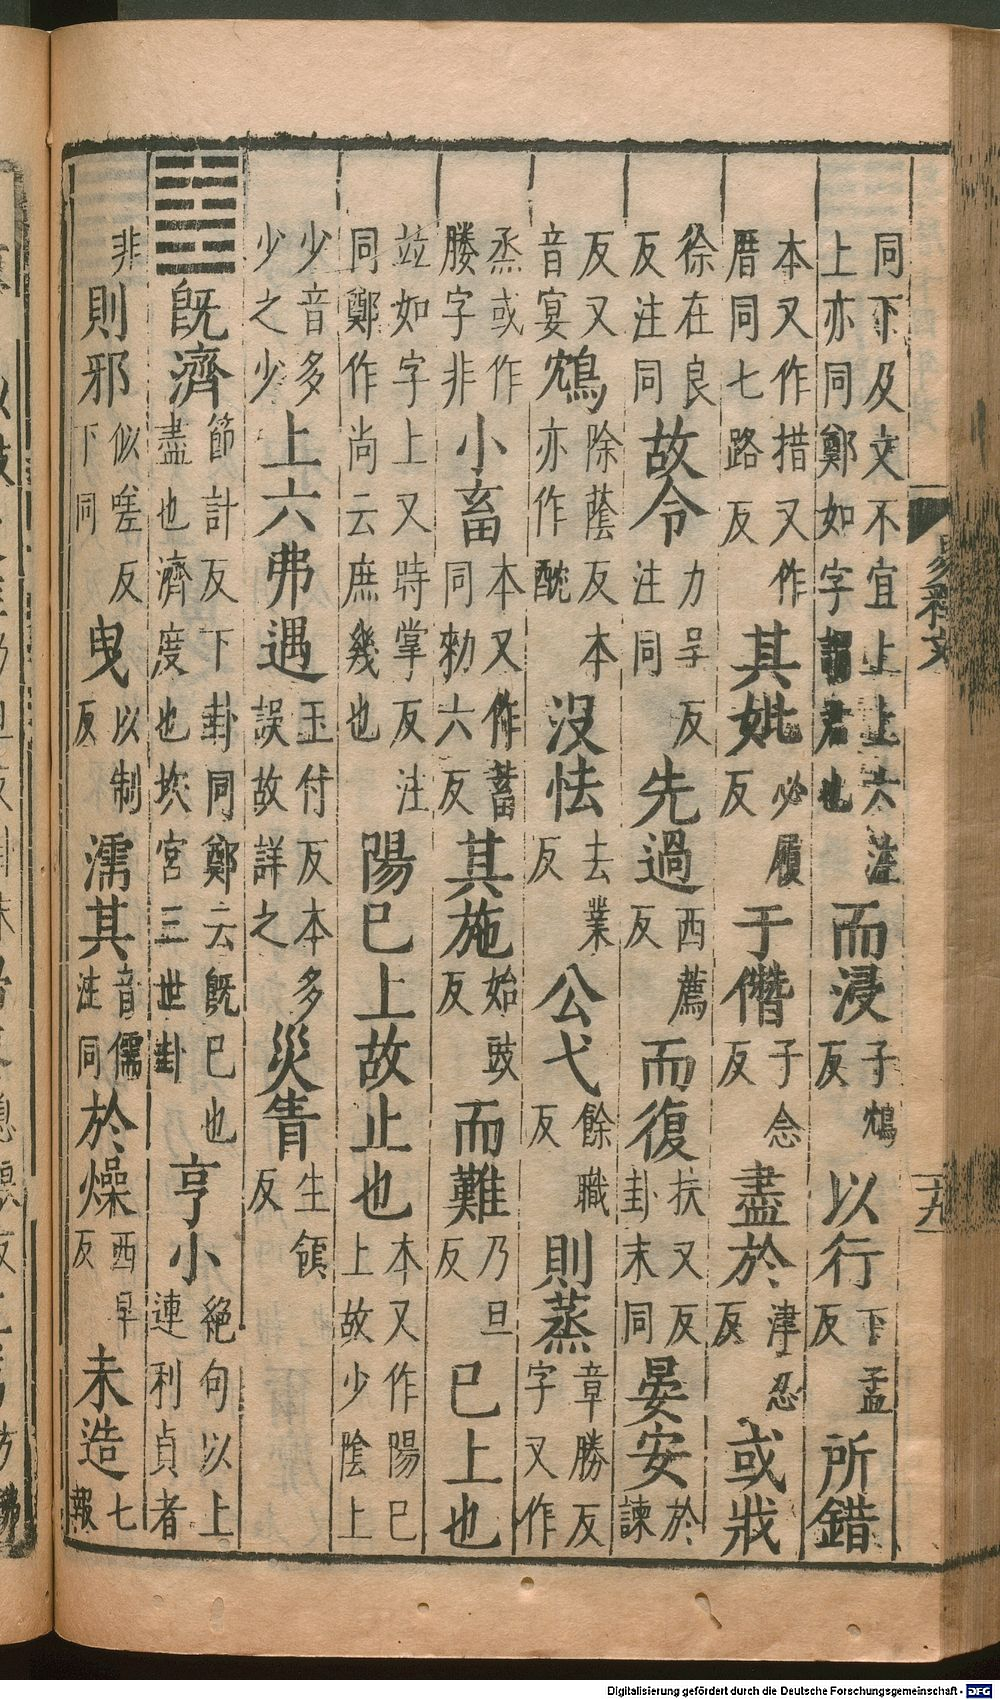 同下及文不宜上上六注上亦同鄭如字謂君也而浸子鴆反以行下孟反所錯
本又作措又作厝同七路反其妣必履反于僭子念反盡於津忍反或戕
徐在良反注同故令力呈反注同先過西薦反而復扶又反卦末同晏安於諫
反又音宴鴆除蔭反本亦作酖沒怯去業反公弋餘職反則蒸章勝反字又作
烝或作勝字非小畜本又作蓄同勑六反其施始豉反而難乃旦反已上也
並如字上又時掌反注同鄭作尚云庶幾也陽已上故止也本又作陽已上故少陰上
少音多少之少上六弗遇玉付反本多誤故詳之災眚生領反
䷾既濟節計反下卦同鄭云既已也盡也濟度也坎宮三世卦亨小絕句以上連利貞者
非則邪似嗟反下同曳以制反濡其音儒注同於燥西早反未造七報
易釋文
十九
Digitalisierung gefördert durch die Deutsche Forschungsgemeinschaft - DFG